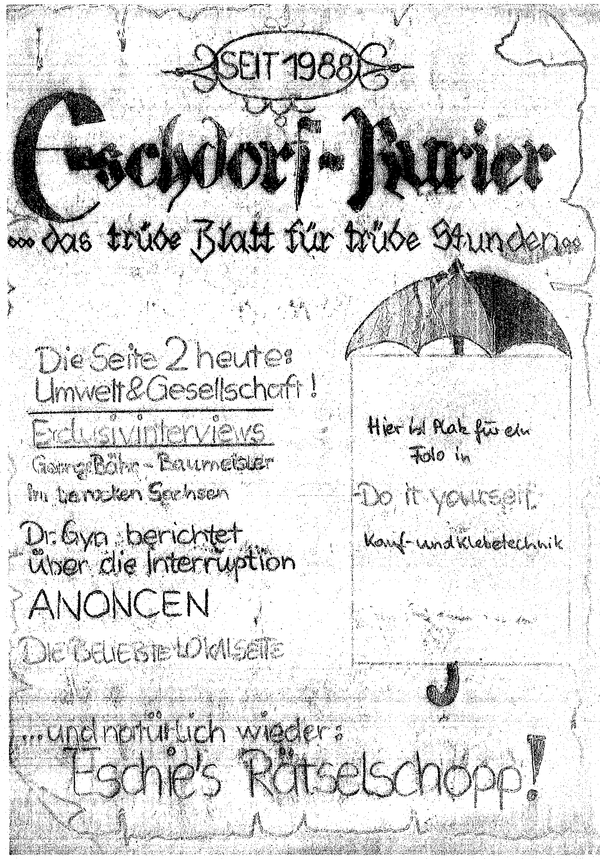 SEIT 1988
Eschdorf-Kurier
... das trübe Blatt für trübe Stunden...
Die Seite 2 heute:
Umwelt & Gesellschaft!
Exclusivinterviews
Georg Bähr - Baumeister
im barocken Sachsen
Dr. Gyn. berichtet
über die Interruption
ANONCEN
DIE BELIEBTE LOKALSEITE
Hier ist Platz für ein
Foto in
-Do it yourself-
Kauf- und Klebetechnik
...und natürlich wieder:
Eschie's Rätselschopp!